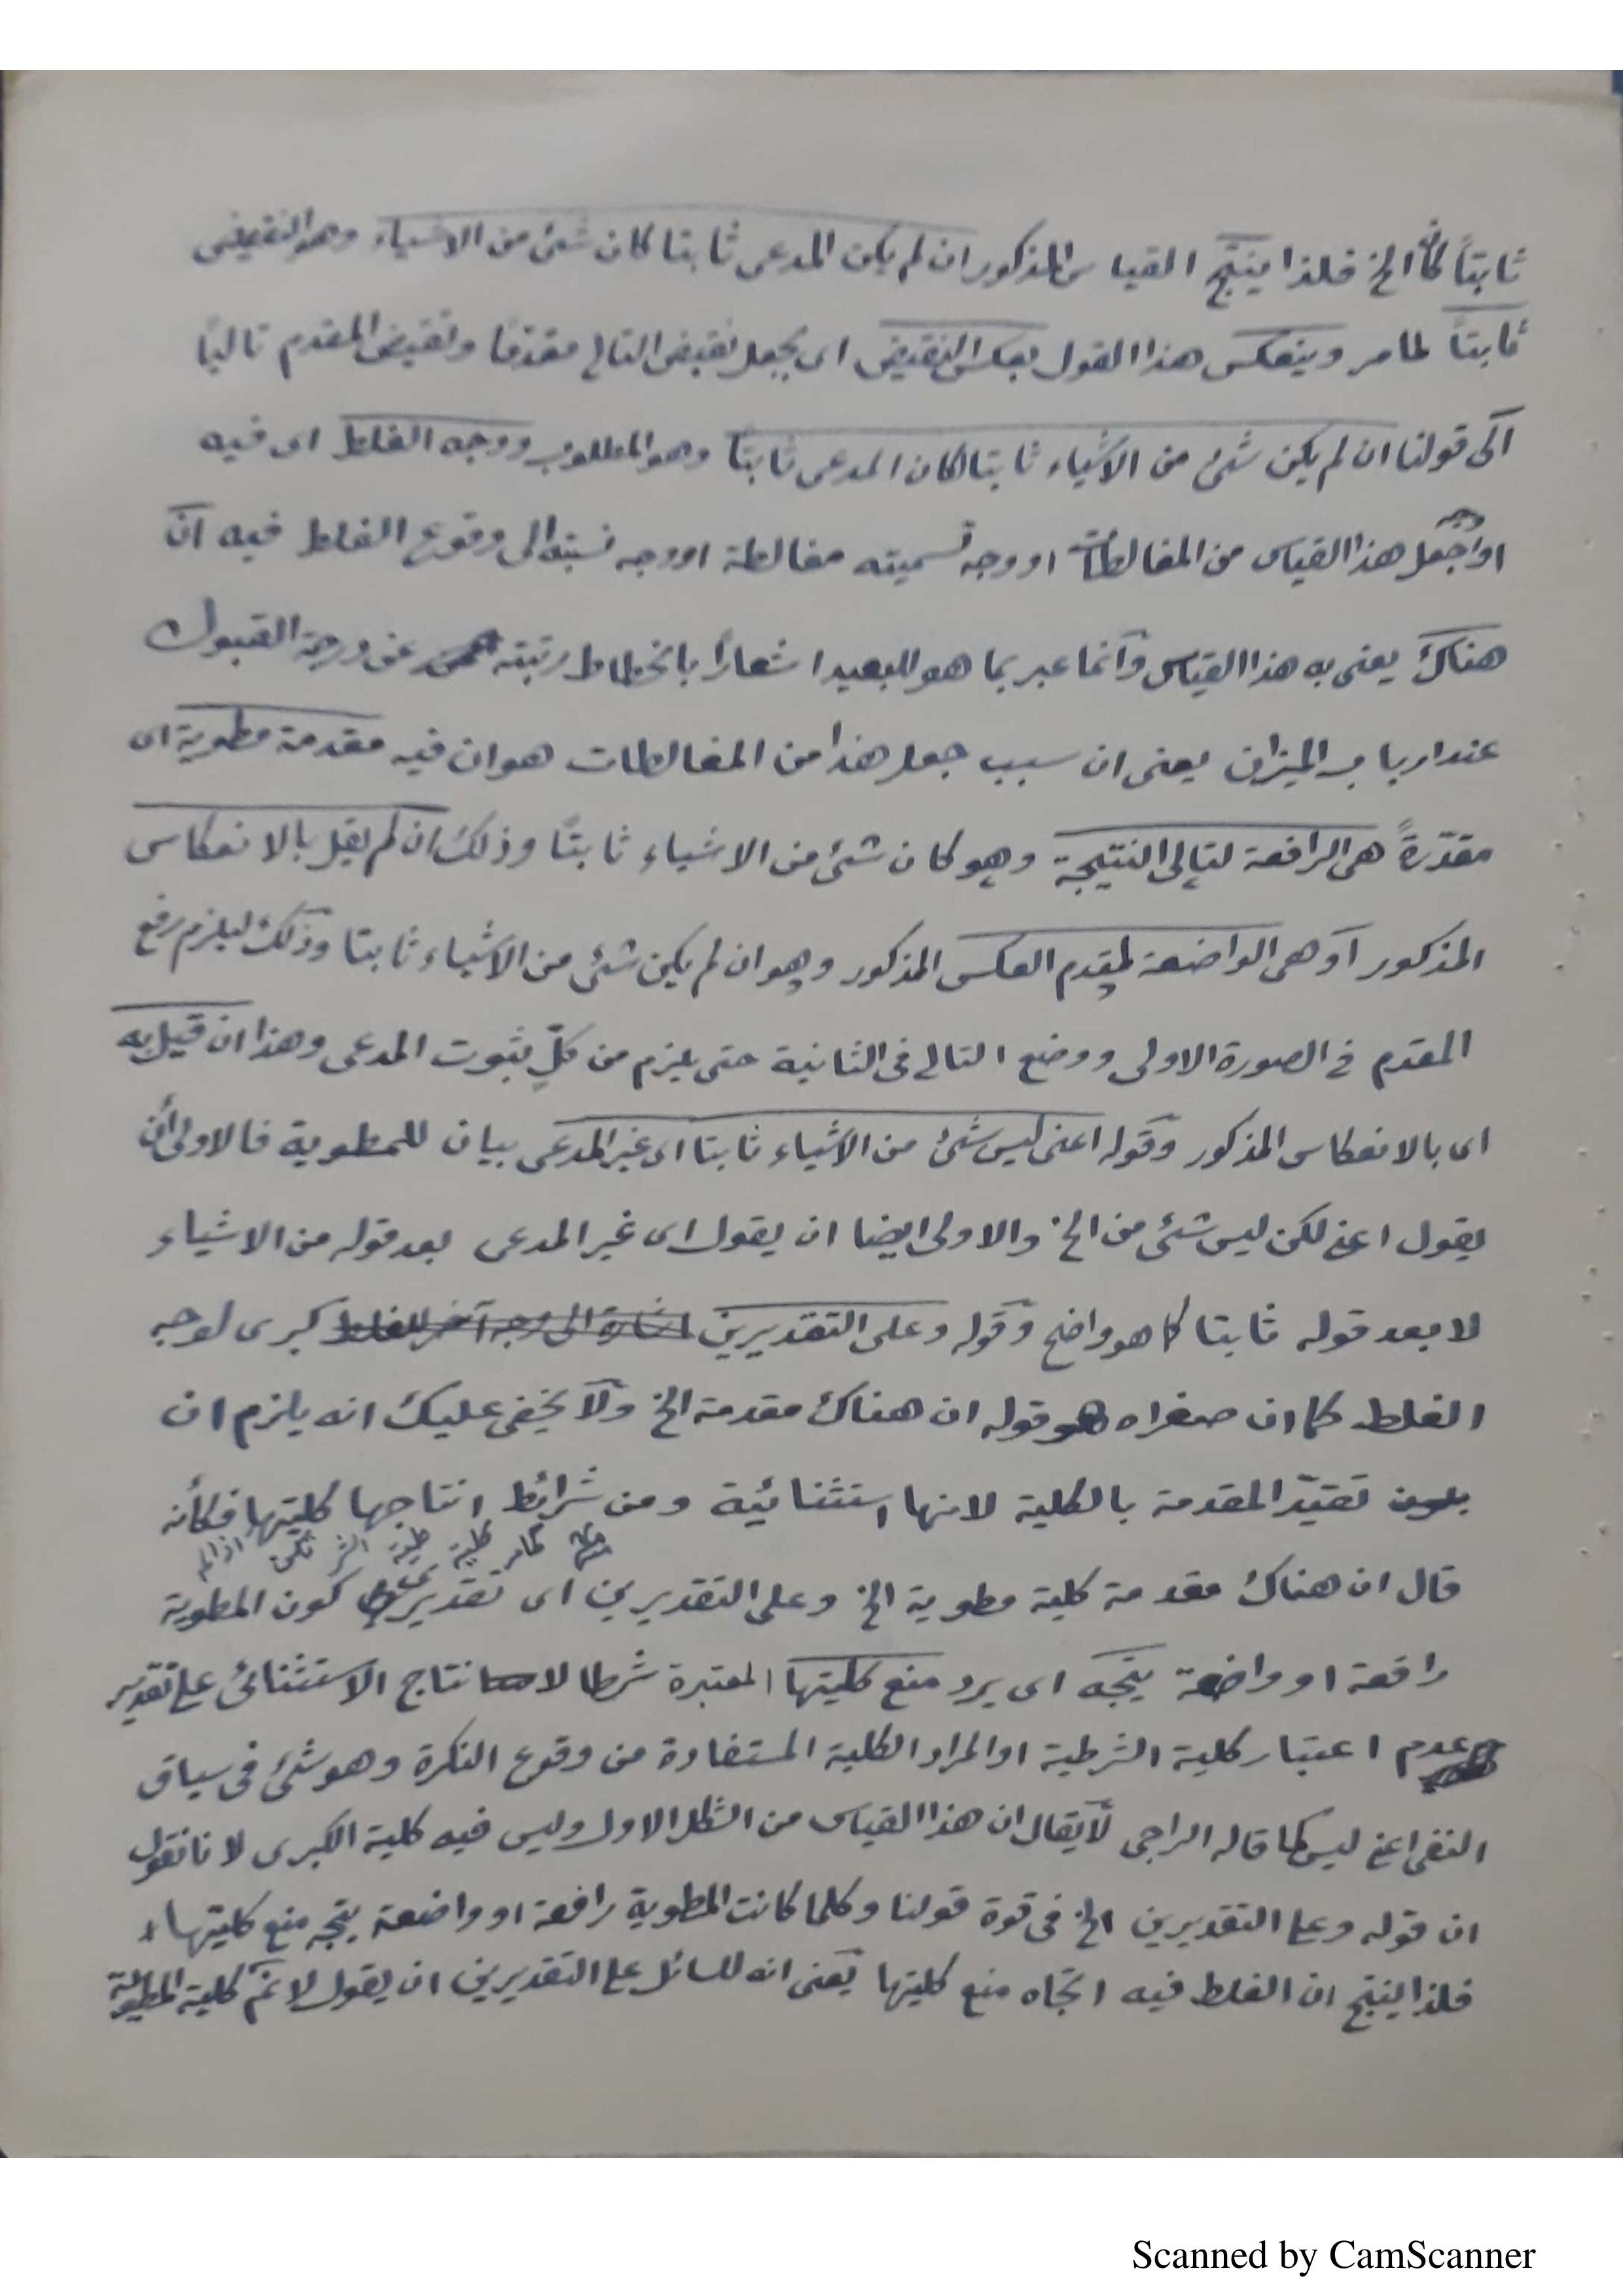 ثابتاً كان الخ فلذا ينتج القياس المذكور ان لم يكن المدعى ثابتا كان شئ من الاشياء وهو النقيض
ثابتاً لما مر وينعكس هذا القول بعكس النقيض اى بجعل نقيض التالى مقدمًا ونقيض المقدم تاليًا
الى قولنا ان لم يكن شئ من الاشياء ثابتا لكان المدعى ثابتًا وهو المطلوب ووجه الغلط اى فيه
او وجه جعل هذا القياس من المغالطات او وجه تسميته مغالطة او وجه نسبته الى وقوع الغلط فيه انّ
هناك يعنى به هذا القياس وانما عبر بما هو للبعيد اشعارًا بانحطاط رتبته عن درجة القبول
عند ارباب الميزان يعنى ان سبب جعل هذا من المغالطات هو ان فيه مقدمة مطوية اى
مقدّرةً هى الرافعة لتالى النتيجة وهو كان شئ من الاشياء ثابتًا وذلك ان لم يقل بالانعكاس
المذكور او هى الواضعة لمقدم العكس المذكور وهو ان لم يكن شئ من الاشياء ثابتا وذلك ليلزم رفع
المقدم فى الصورة الاولى ووضع التالى فى الثانية حتى يلزم من كلٍّ ثبوت المدعى وهذا ان قيل به
اى بالانعكاس المذكور وقوله اعنى ليس شئ من الاشياء ثابتا اى غير المدعى بيان للمطوية فالاولى أن
يقول اعنى لكن ليس شئ من الخ والاولى ايضا ان يقول اى غير المدعى بعد قوله من الاشياء
لا بعد قوله ثابتا كما هو واضح وقوله وعلى التقديرين اشارة الى وجه آخر للغلط كبرى لوجه
الغلط كما ان صغراه هو قوله ان هناك مقدمة الخ ولا يخفى عليك انه يلزم ان
يكون تقيّد المقدمة بالكلية لانها استثنائية ومن شرائط انتاجها كليتها فكأنه
اذا لم تكن الشرطية كلية كما مر
قال ان هناك مقدمة كلية مطوية الخ وعلى التقديرين اى تقديرى كون المطوية
رافعة او واضعة يتجه اى يرد منع كليتها المعتبرة شرطا لانتاج الاستثنائى على تقدير
عدم اعتبار كلية الشرطية او المراد الكلية المستفادة من وقوع النكرة وهو شئ فى سياق
النفى اعنى ليس كما قاله الراجى لا يقال ان هذا القياس من الشكل الاول وليس فيه كلية الكبرى لانا نقول
ان قوله وعلى التقديرين الخ فى قوة قولنا وكلما كانت المطوية رافعة او واضعة يتجه منع كليتها
فلذا ينتج ان الغلط فيه اتجاه منع كليتها يعنى انه للسائل على التقديرين ان يقول لا نم كلية المطوية
Scanned by CamScanner